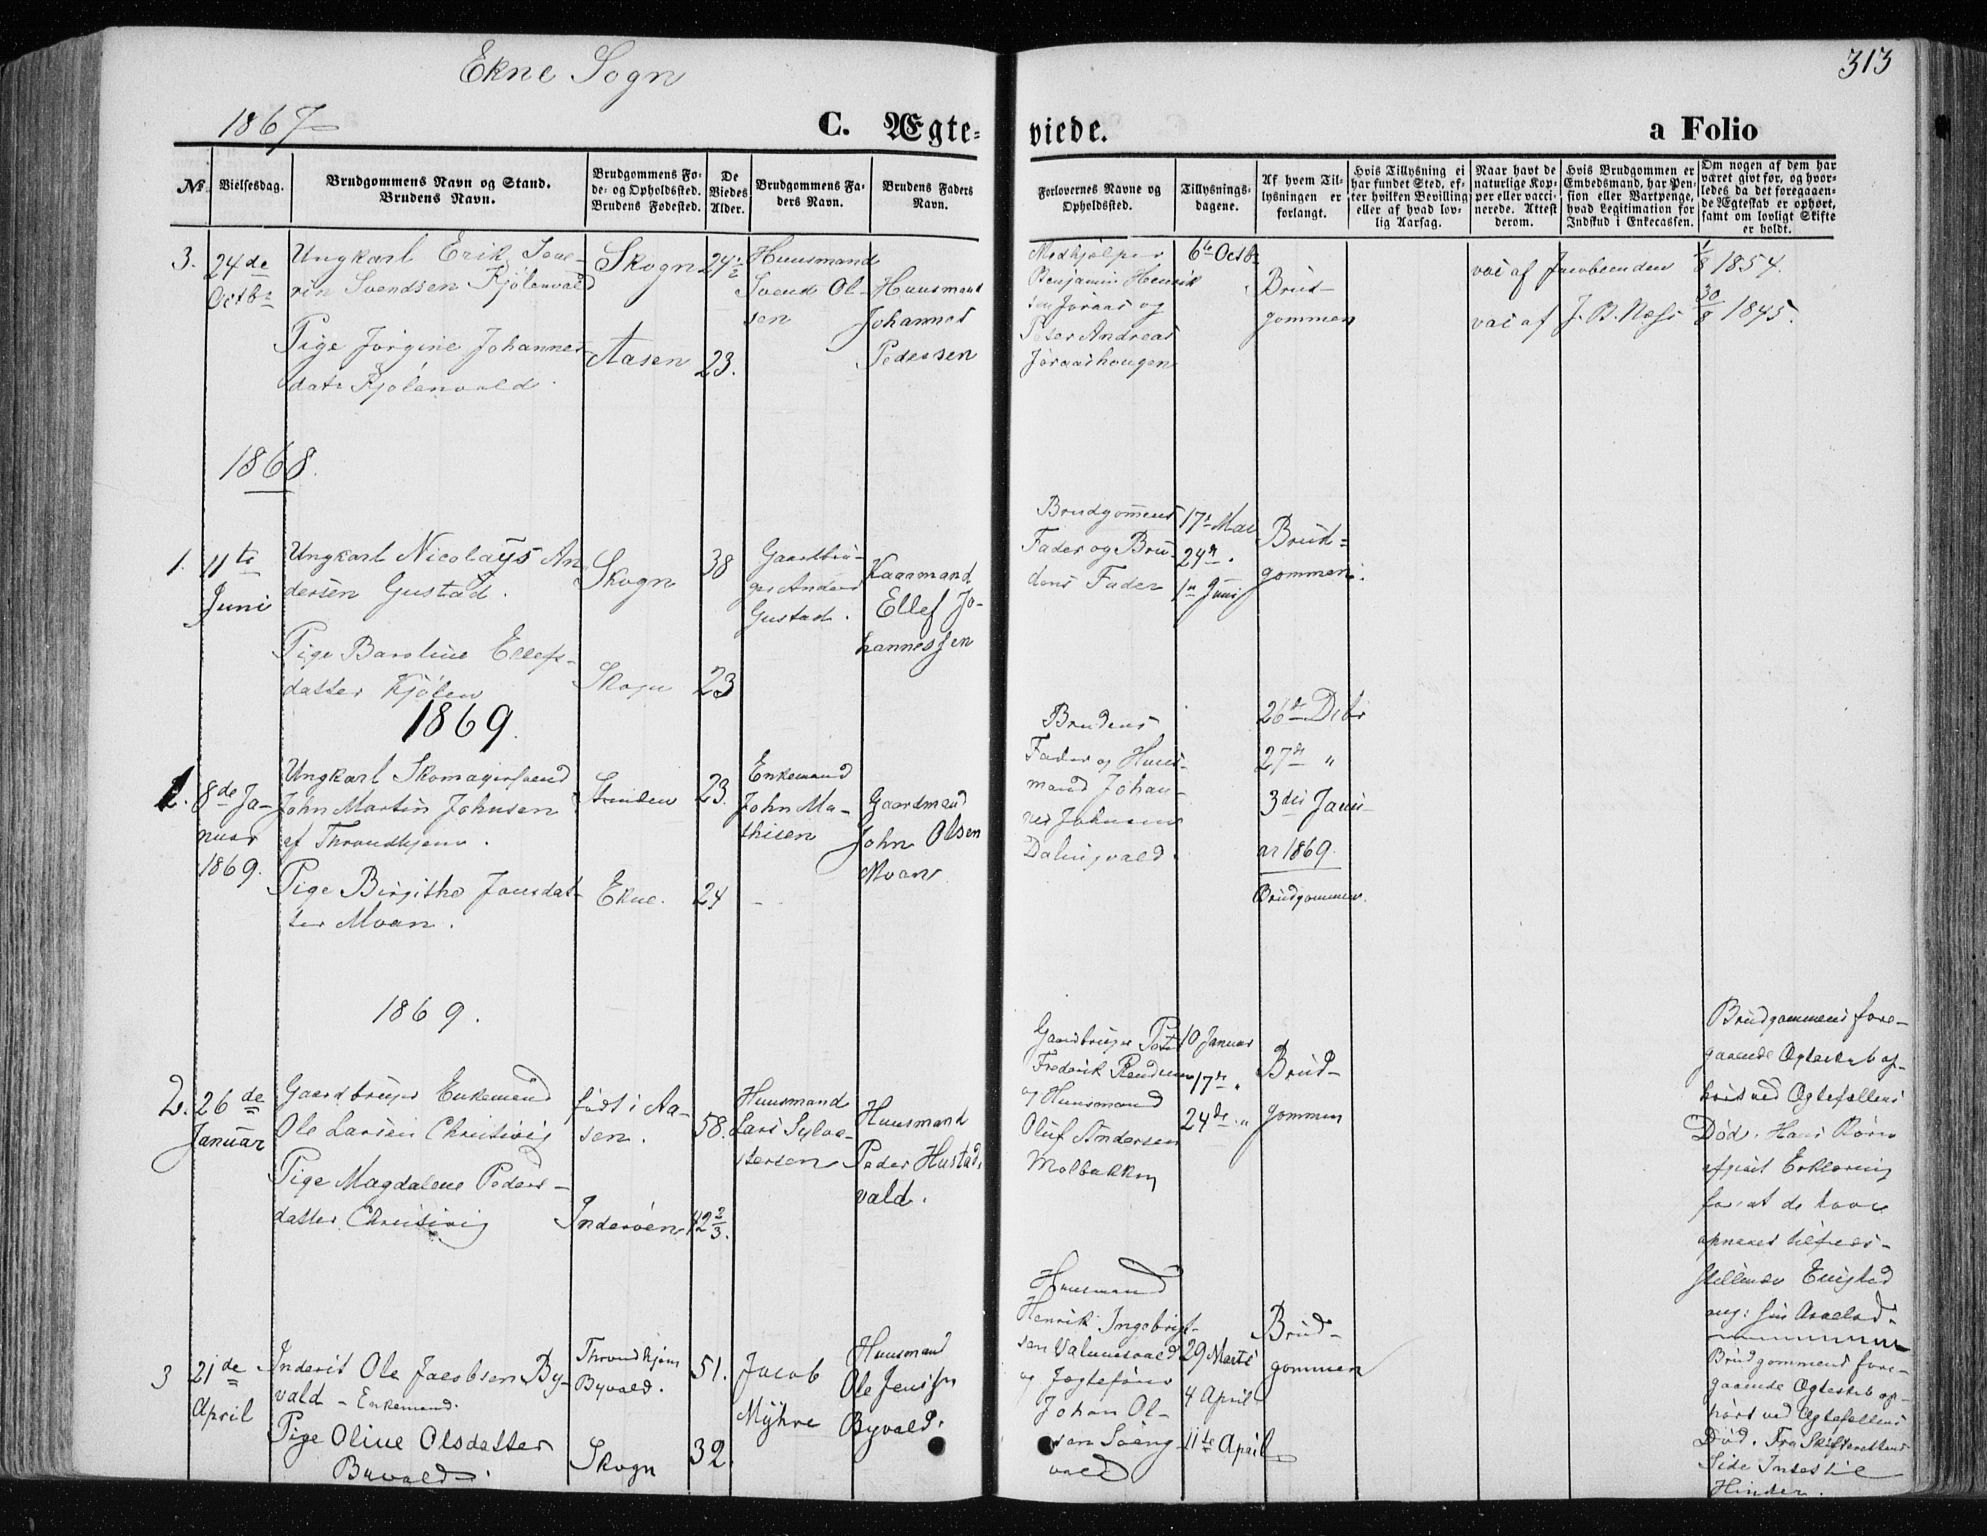 Ekne Sogn
313
1867
C. Ægte-
viede.
a Folio
No.
Vielsesdag.
Brudgommens Navn og Stand.
Brudens Navn.
Brudgommens Fo-
de- og Opholdssted.
Brudens Fødested.
De
Viedes
Alder.
Brudgommens Fa-
ders Navn.
Brudens Faders
Navn.
Forlovernes Navne og
Opholdssted.
Tillysnings-
dagene.
Af hvem Til-
lysningen er
forlangt.
Hvis Tillysning ei
har fundet Sted, ef-
ter hvilken Bevilling
eller af hvad lov-
lig Aarsag.
Naar havt de
naturlige Kop-
per eller vacci-
nerede. Attest
derom.
Hvis Brudgommen er
Embedsmand, har Pen-
sion eller Vartpenge,
hvad Legitimation for
Indskud i Enkecassen.
Om nogen af dem har
været givt før, og hvor-
ledes da det foregaaen-
de Ægteskab er ophørt,
samt om lovligt Skifte
er holdt.
3.
24de
Octbr
Ungkarl Erik Seve-
rin Svendsen Kjölenvald
Pige Jörgine Johannes
datr Kjölenvald.
Skogn
Aasen
24 1/2
23.
Huusmand
Svend Ol-
sen
Huusmand
Johannes
Pedersen
Medhjelper
Benjamin Henrik
sen Joraas og
Peter Andreas
Joraashaugen
6te Octbr
Brud-
gommen
vac af Jacobsen den 1/8 1854.
vac af J. B. Næss 30/8 1845.
1868.
1.
11te
Juni
Ungkarl Nicolays An
dersen Gustad.
Pige Baroline Ellefs-
datter Kjölen
Skogn
Skogn
38
23
Gaardbru-
ger Anders
Gustad.
Kaarmand
Ellef Jo-
hannessen
Brudgommens
Fader og Bru-
dens Fader
17de Mai
24de "
1ste Juni
Brud-
gommen.
1869.
1.
8de Ja-
nuar
1869.
Ungkarl Skomagersvend
John Martin Johnsen
af Throndhjem.
Pige Birgithe Jonsdat-
ter Moan.
Strinden
Ekne.
23.
24
Enkemand
John Ma-
thisen
Gaardmand
John Olsen
Moan
Brudens
Fader og Huus-
mand Johan-
nes Johnsen
Dalingvald.
26de Debr
27de "
3die Janu-
ar 1869.
Brudgommen.
1869.
2.
26de
Januar
Gaardbruger Enkemand
Ole Larsen Christivig
Pige Magdalene Peders-
datter Christivig
födt i Aa-
sen.
Inderöen
58.
42 2/3.
Huusmand
Lars Sylve-
stersen
Huusmand
Peder Hustad-
vald.
Gaardbruger Peter
Frederik
og Huusmand
Oluf Andersen
Molbakken
10 Januar
17de "
24de "
Brud-
gommen
Brudgommens fore-
gaaende Ægteskab op-
hört ved Ægtefællens
Död. Hans Börn
afgivet Erklæring
for at de have
opnaaet tilfreds-
stillende Enighed
ang:
3
21de
April
Inderst Ole Jacobsen By-
vald - Enkemand.
Pige Oline Olsdatter
Byvald.
Throndhjem
Byvald.
Skogn
51.
32.
Jacob
Myhre
Huusmand
Ole Jenssen
Byvald.
Huusmand
Henrik Ingebrigt-
sen
og Jægtefører
Johan Ol-
sen Saeng
vald
29 Marts
4 April
11te April
Brud-
gommen
Brudgommens fore-
gaaende Ægteskab op-
hört ved Ægtefællens
Död. Fra Skifterettens
Side Intet til
Hinder.